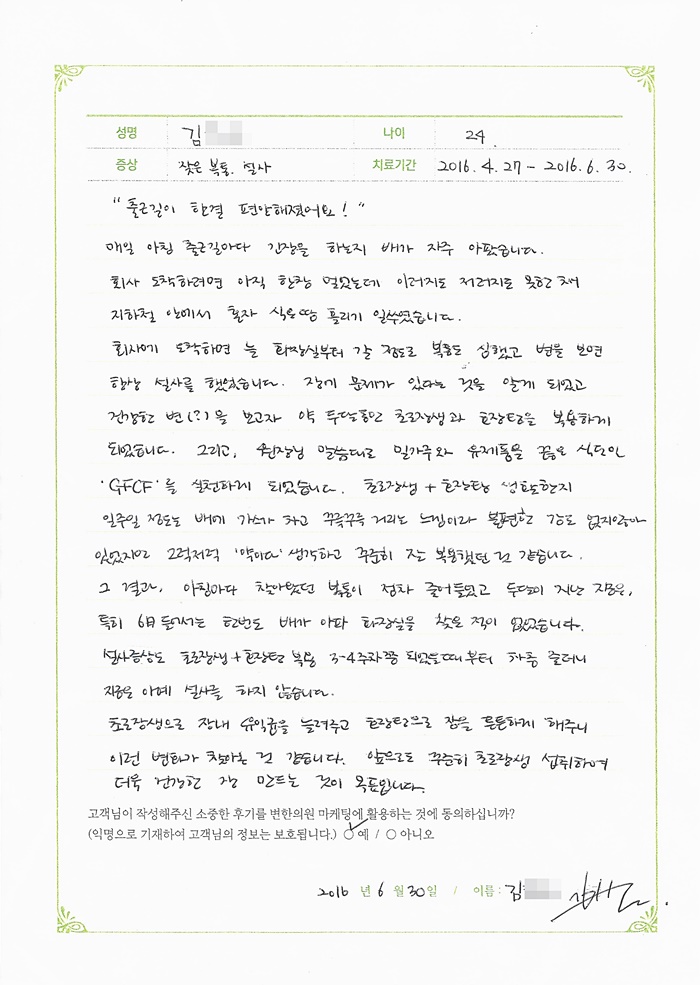 성명 김 나이 24.
증상 잦은 복통. 설사 치료기간 2016. 4. 27 - 2016. 6. 30.
"출근길이 한결 편안해졌어요! "
매일 아침 출근길마다 긴장을 하는지 배가 자주 아팠습니다.
회사 도착하려면 아직 한창 멀었는데 이러지도 저러지도 못한 채
지하철 안에서 혼자 식은땀 흘리기 일쑤였습니다.
회사에 도착하면 늘 화장실부터 갈 정도로 복통도 심했고 변을 보면
항상 설사를 했었습니다. 장에 문제가 있다는 것을 알게 되었고
건강한 변(?)을 보고자 약 두달동안 초로장생과 효장탕을 복용하게
되었습니다. 그리고, 원장님 말씀대로 밀가루와 유제품을 끊은 식단인
'GFCF'를 실천하게 되었습니다. 초로장생 + 효장탕 생활한지
일주일 정도는 배에 가스가 차고 꾸륵꾸륵 거리는 느낌이라 불편한 감도 없지않아
있었지만 그럭저럭 '약이다' 생각하고 꾸준히 잘 복용했던 것 같습니다.
그 결과, 아침마다 찾아왔던 복통이 점차 줄어들었고 두달이 지난 지금은,
특히 6월 들어서는 한번도 배가 아파 화장실을 찾은 적이 없었습니다.
설사증상도 초로장생+효장탕 복용 3-4주차쯤 되었을때부터 차츰 줄더니
지금은 아예 설사를 하지 않습니다.
초로장생으로 장내 유익균을 늘려주고 효장탕으로 장을 튼튼하게 해주니
이런 변화가 찾아온 것 같습니다. 앞으로도 꾸준히 초로장생 섭취하여
더욱 건강한 장 만드는 것이 목표입니다.
고객님이 작성해주신 소중한 후기를 변한의원 마케팅에 활용하는 것에 동의하십니까?
(익명으로 기재하여 고객님의 정보는 보호됩니다.) ○예 / ○ 아니오
2016 년 6 월 30 일 / 이름 : 김